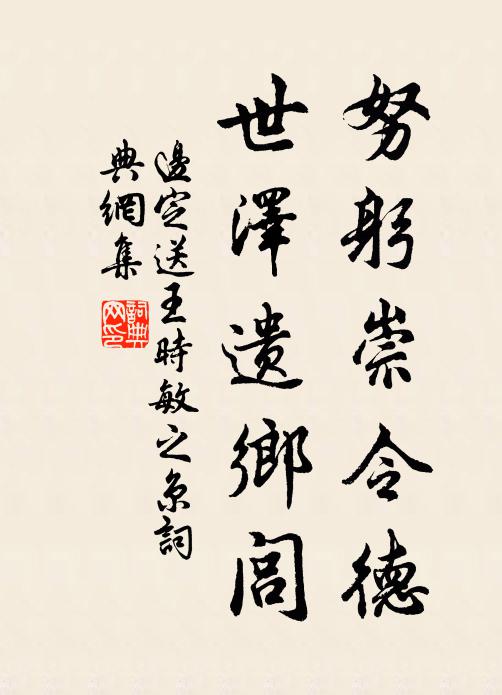 努躬崇令德
世澤遺鄉閭
邊定送王時敏之京詞
典網集
詞典
网印